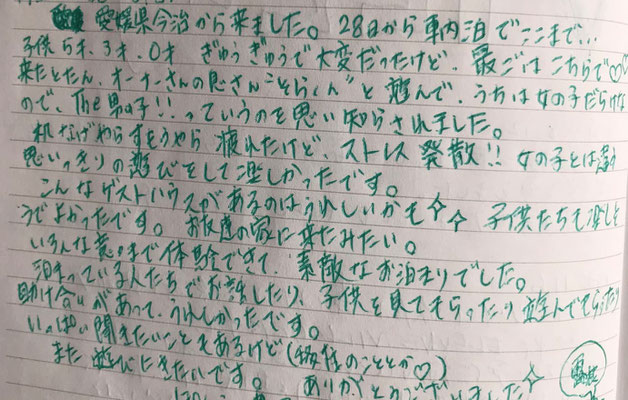 愛媛県今治から来ました。28日から車内泊でここまで…
子供5才、3才、0才 ぎゅうぎゅうで大変だったけど、最ごはこちらで♡♡
来たとたん、オーナーさんの息さん"そらくん"と遊んで、うちは女の子だらけな
ので、The男の子!!っていうのを思い知らされました。
机なげわらすもうやら疲れたけど、ストレス発散!!女の子とは違う
思いっきりの遊びをして楽しかったです。
こんなゲストハウスがあるのはうれしいかも☆☆ 子供たちも楽しそ
うでよかったです。お友達の家に来たみたい。
いろんな意味まで体験できて、素敵なお泊まりでした。
泊まっている人たちでお話したり、子供を見てもらったり遊んでもらったり
助け合いがあって、うれしかったです。
いっぱい聞きたいこともあるけど(移住のこととか♡)
また遊びにきたいです。ありがとうございました☆